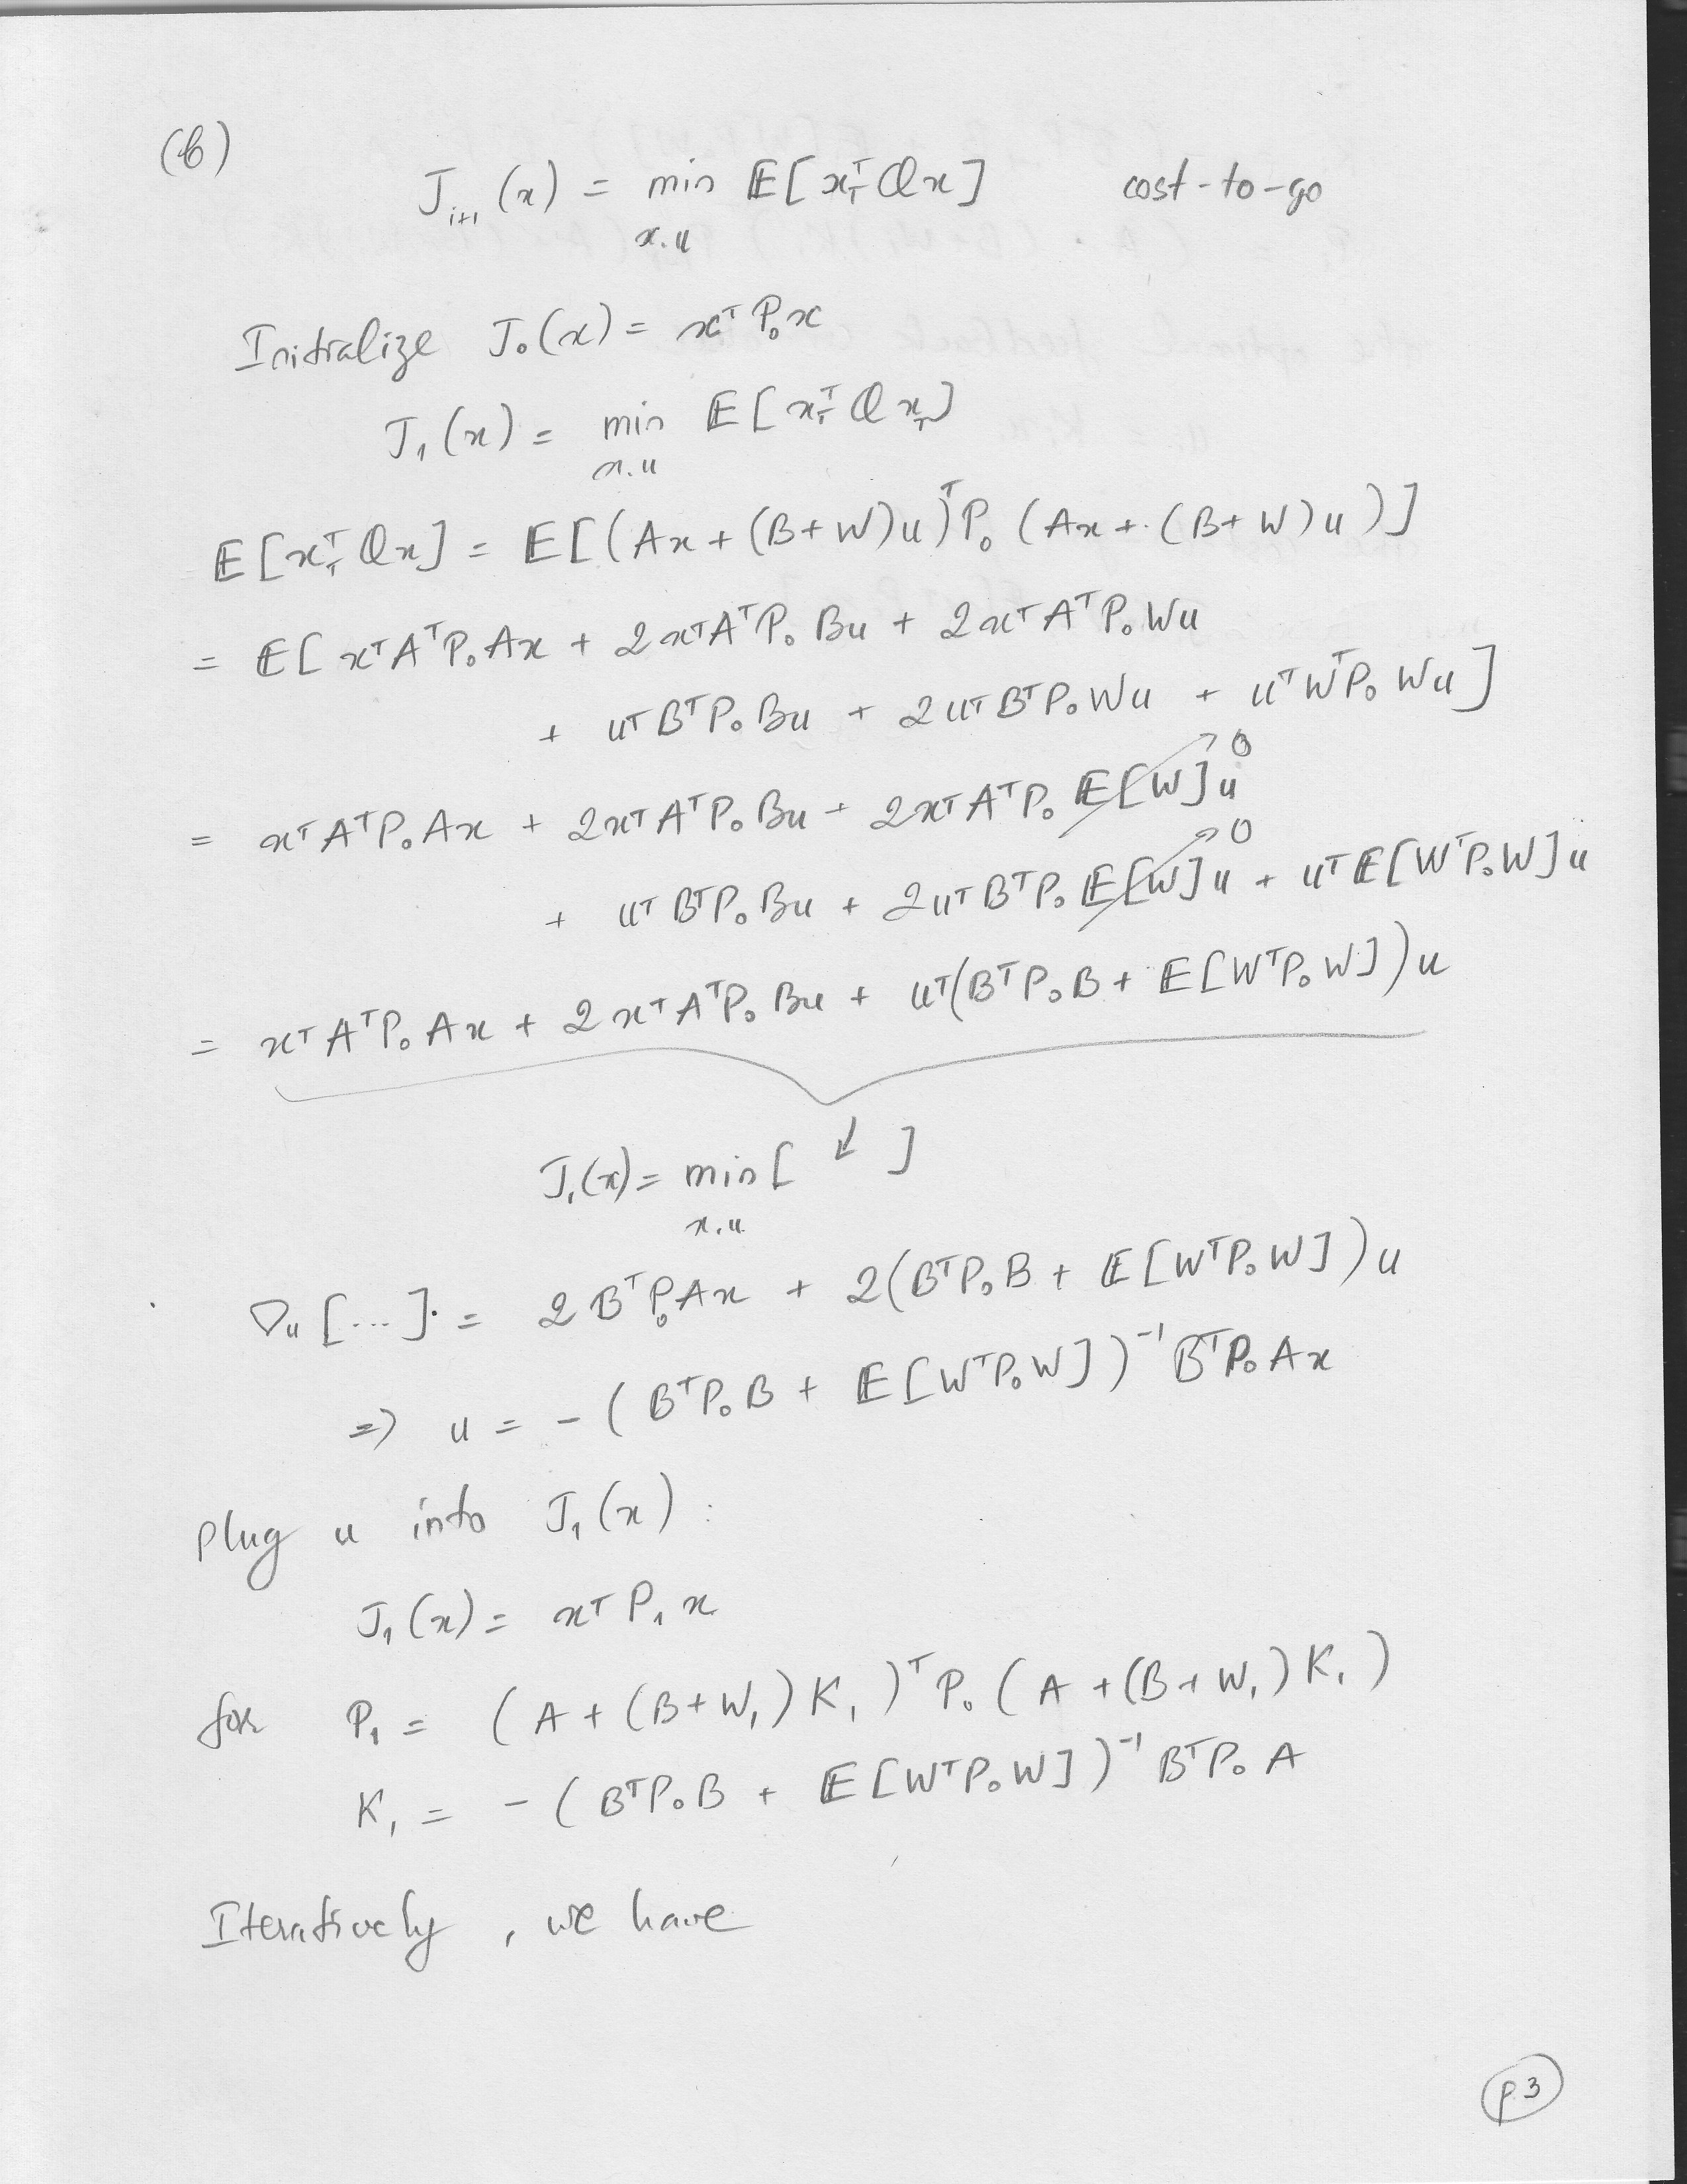 (b)
J_{i+1}(x) = min_{x,u} E[x_T^T Q x] cost-to-go
Initialize J_0(x) = x^T P_0 x
J_1(x) = min_{x,u} E[x_T^T Q x_T]
E[x_T^T Q x] = E[(Ax + (B+W)u)^T P_0 (Ax + (B+W)u)]
= E[x^T A^T P_0 A x + 2x^T A^T P_0 B u + 2x^T A^T P_0 W u
+ u^T B^T P_0 B u + 2u^T B^T P_0 W u + u^T W^T P_0 W u]
= x^T A^T P_0 A x + 2x^T A^T P_0 B u + 2x^T A^T P_0 E[W] u → 0
+ u^T B^T P_0 B u + 2u^T B^T P_0 E[W] u → 0 + u^T E[W^T P_0 W] u
= x^T A^T P_0 A x + 2x^T A^T P_0 B u + u^T (B^T P_0 B + E[W^T P_0 W]) u
J_1(x) = min_{x,u} [ ↓ ]
∇_u [...] = 2 B^T P_0 A x + 2(B^T P_0 B + E[W^T P_0 W]) u
⇒ u = -(B^T P_0 B + E[W^T P_0 W])^{-1} B^T P_0 A x
Plug u into J_1(x):
J_1(x) = x^T P_1 x
for P_1 = (A + (B+W_1)K_1)^T P_0 (A + (B+W_1)K_1)
K_1 = -(B^T P_0 B + E[W^T P_0 W])^{-1} B^T P_0 A
Iteratively, we have
p.3